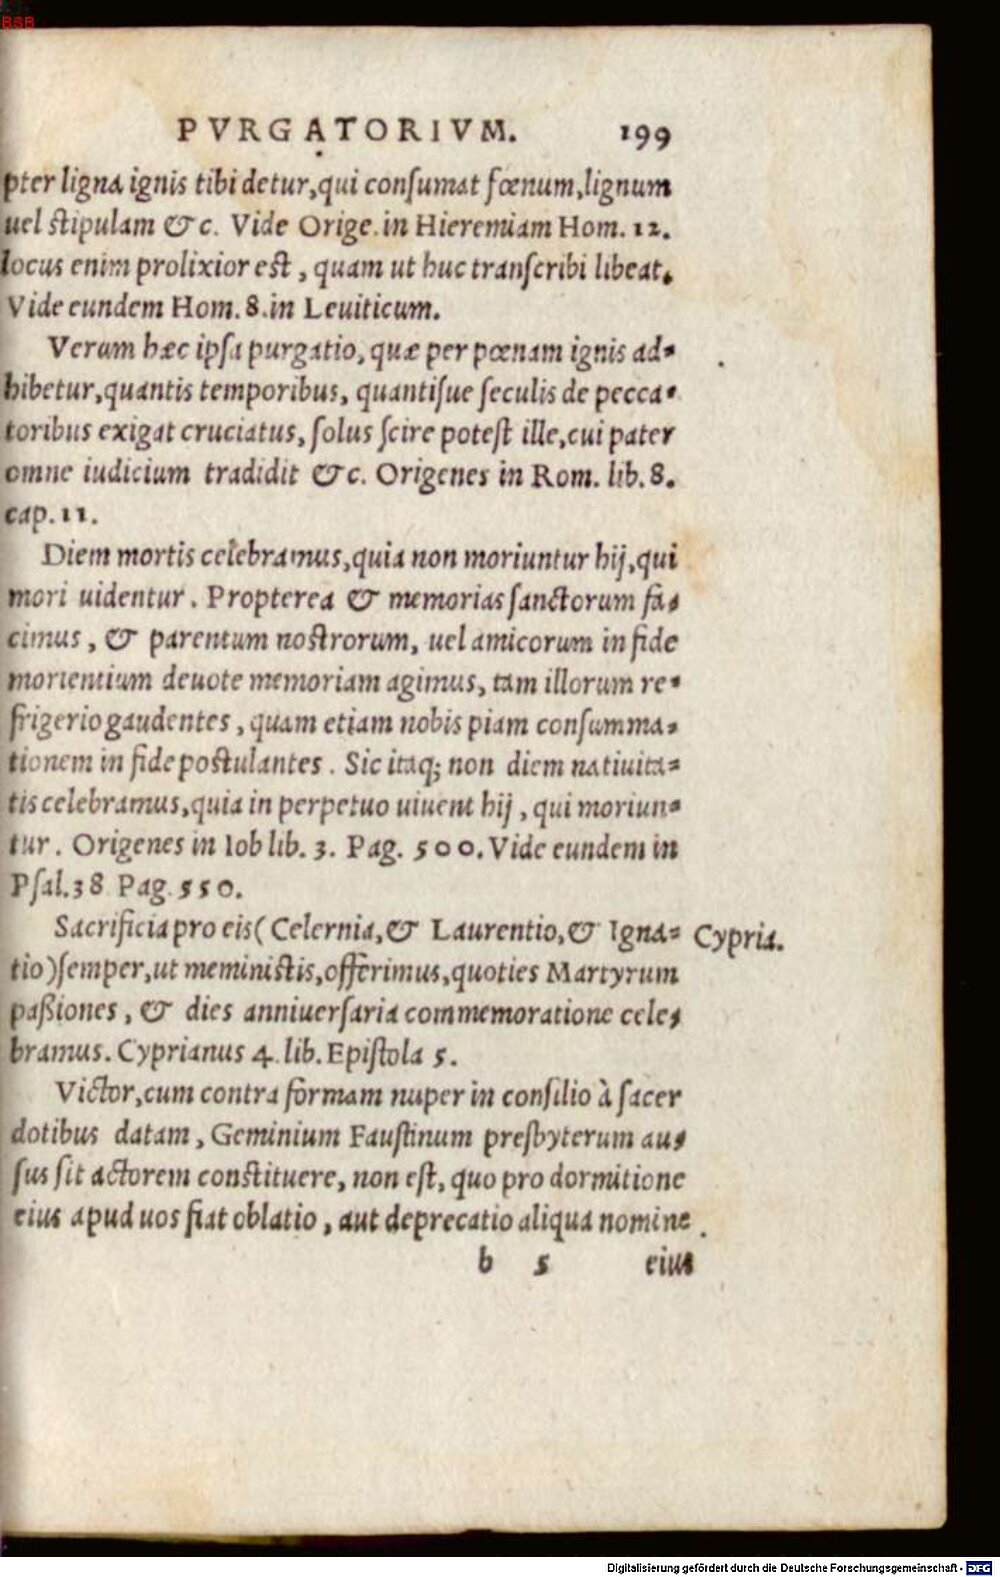 BSB
PVRGATORIVM. 199
pter ligna ignis tibi detur, qui conſumat fœnum, lignum
uel ſtipulam & c. Vide Orige. in Hieremiam Hom. 12.
locus enim prolixior eſt, quam ut huc tranſcribi libeat.
Vide eundem Hom. 8. in Leuiticum.
Verum hæc ipſa purgatio, quæ per pœnam ignis ad-
hibetur, quantis temporibus, quantiſue ſeculis de pecca-
toribus exigat cruciatus, ſolus ſcire poteſt ille, cui pater
omne iudicium tradidit & c. Origenes in Rom. lib. 8.
cap. 11.
Diem mortis celebramus, quia non moriuntur hij, qui
mori uidentur. Propterea & memorias ſanctorum fa-
cimus, & parentum noſtrorum, uel amicorum in fide
morientium deuote memoriam agimus, tam illorum re-
frigerio gaudentes, quam etiam nobis piam conſumma-
tionem in fide poſtulantes. Sic itaq; non diem natiuita-
tis celebramus, quia in perpetuo uiuent hij, qui moriun-
tur. Origenes in Iob lib. 3. Pag. 500. Vide eundem in
Pſal. 38 Pag. 550.
Sacrificia pro eis (Celernia, & Laurentio, & Igna- Cypria.
tio) ſemper, ut meminiſtis, offerimus, quoties Martyrum
paßiones, & dies anniuerſaria commemoratione cele-
bramus. Cyprianus 4. lib. Epiſtola 5.
Victor, cum contra formam nuper in conſilio à ſacer
dotibus datam, Geminium Fauſtinum presbyterum au-
ſus ſit actorem conſtituere, non eſt, quo pro dormitione
eius apud uos fiat oblatio, aut deprecatio aliqua nomine
b 5 eius
Digitalisierung gefördert durch die Deutsche Forschungsgemeinschaft - DFG